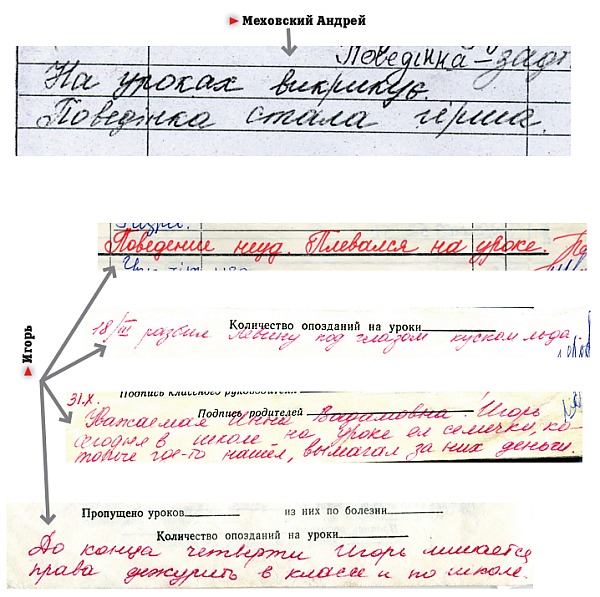 Меховский Андрей
Поведінка – зад
На уроках викрикує.
Поведінка стала гірша.
Поведение неуд. Плевался на уроке.
Игорь
Количество опозданий на уроки
18/III разбил Левину под глазом куском льда.
31.X.
Подпись классного руководителя
Подпись родителей
Уважаемая Инна Вадимовна! Игорь
сегодня в школе на уроке ел семечки, ко-
торые где-то нашел, вымагал за них деньги.
Пропущено уроков из них по болезни
Количество опозданий на уроки
До конца четверти Игорь лишается
права дежурить в классе и по школе.